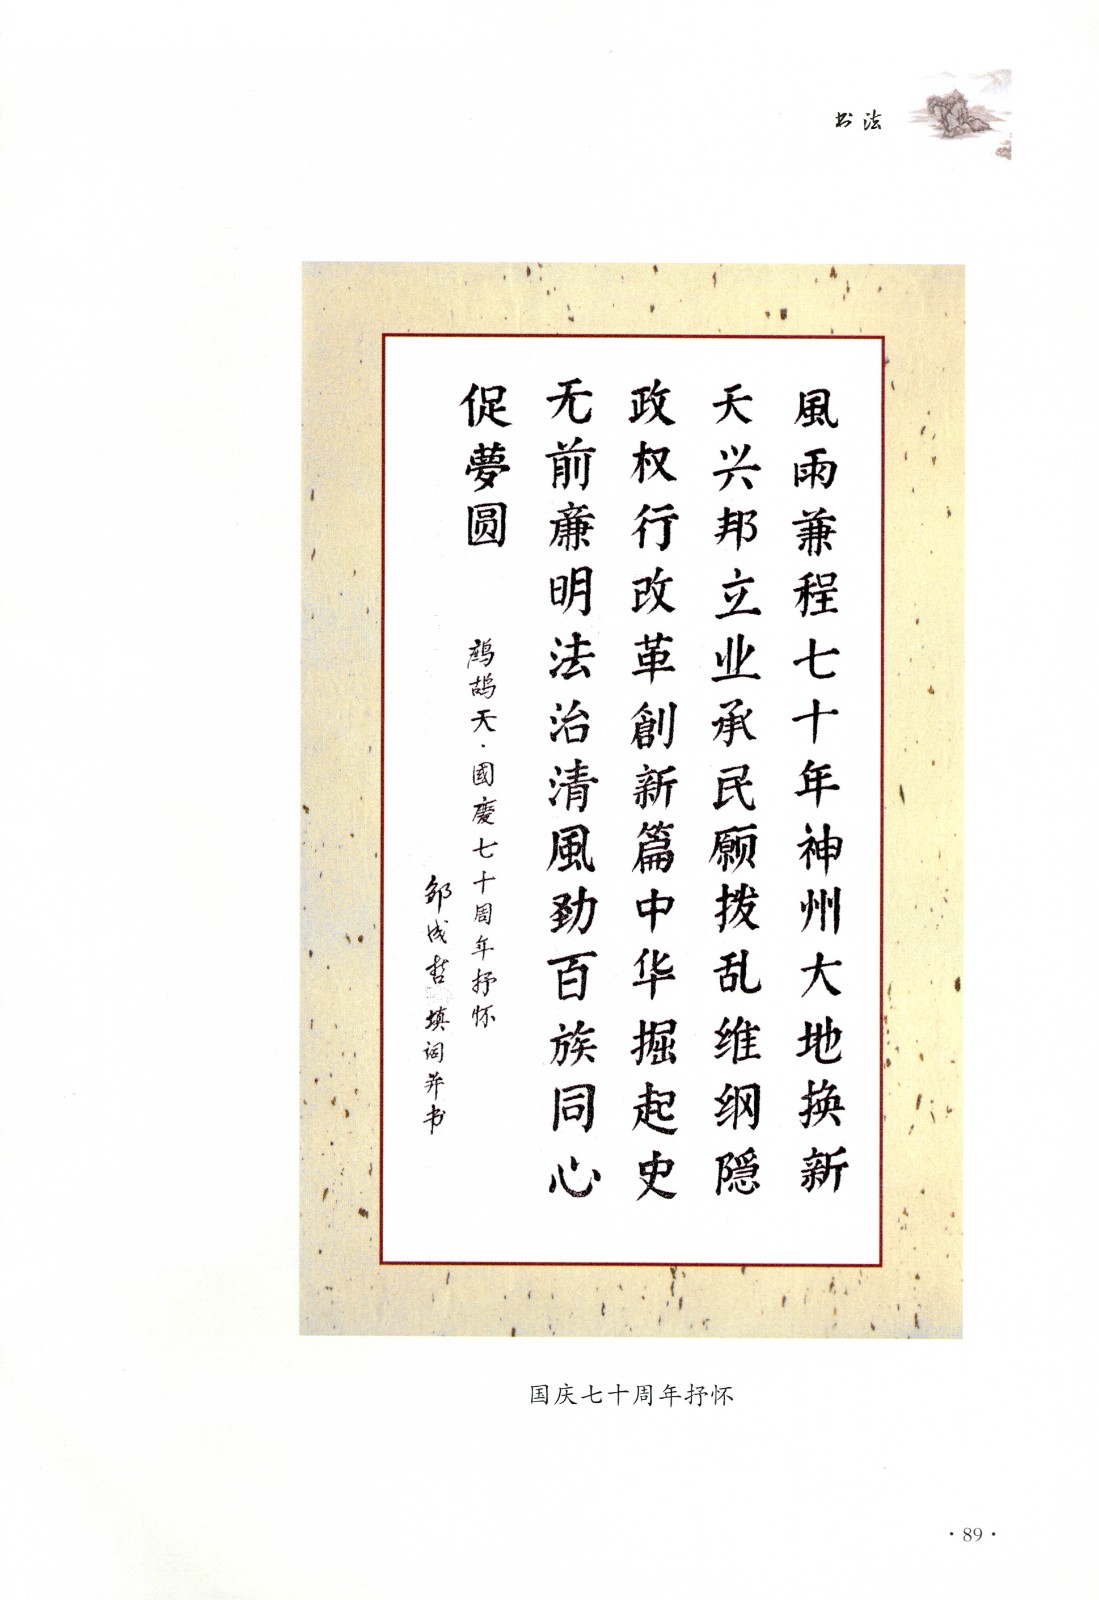 书法
風雨兼程七十年神州大地换新
天兴邦立业承民愿拨乱维纲隱
政权行改革創新篇中华掘起史
无前廉明法治清風劲百族同心
促夢圆
鹧鸪天·國慶七十周年抒怀
邹成哲填词并书
国庆七十周年抒怀
·89·